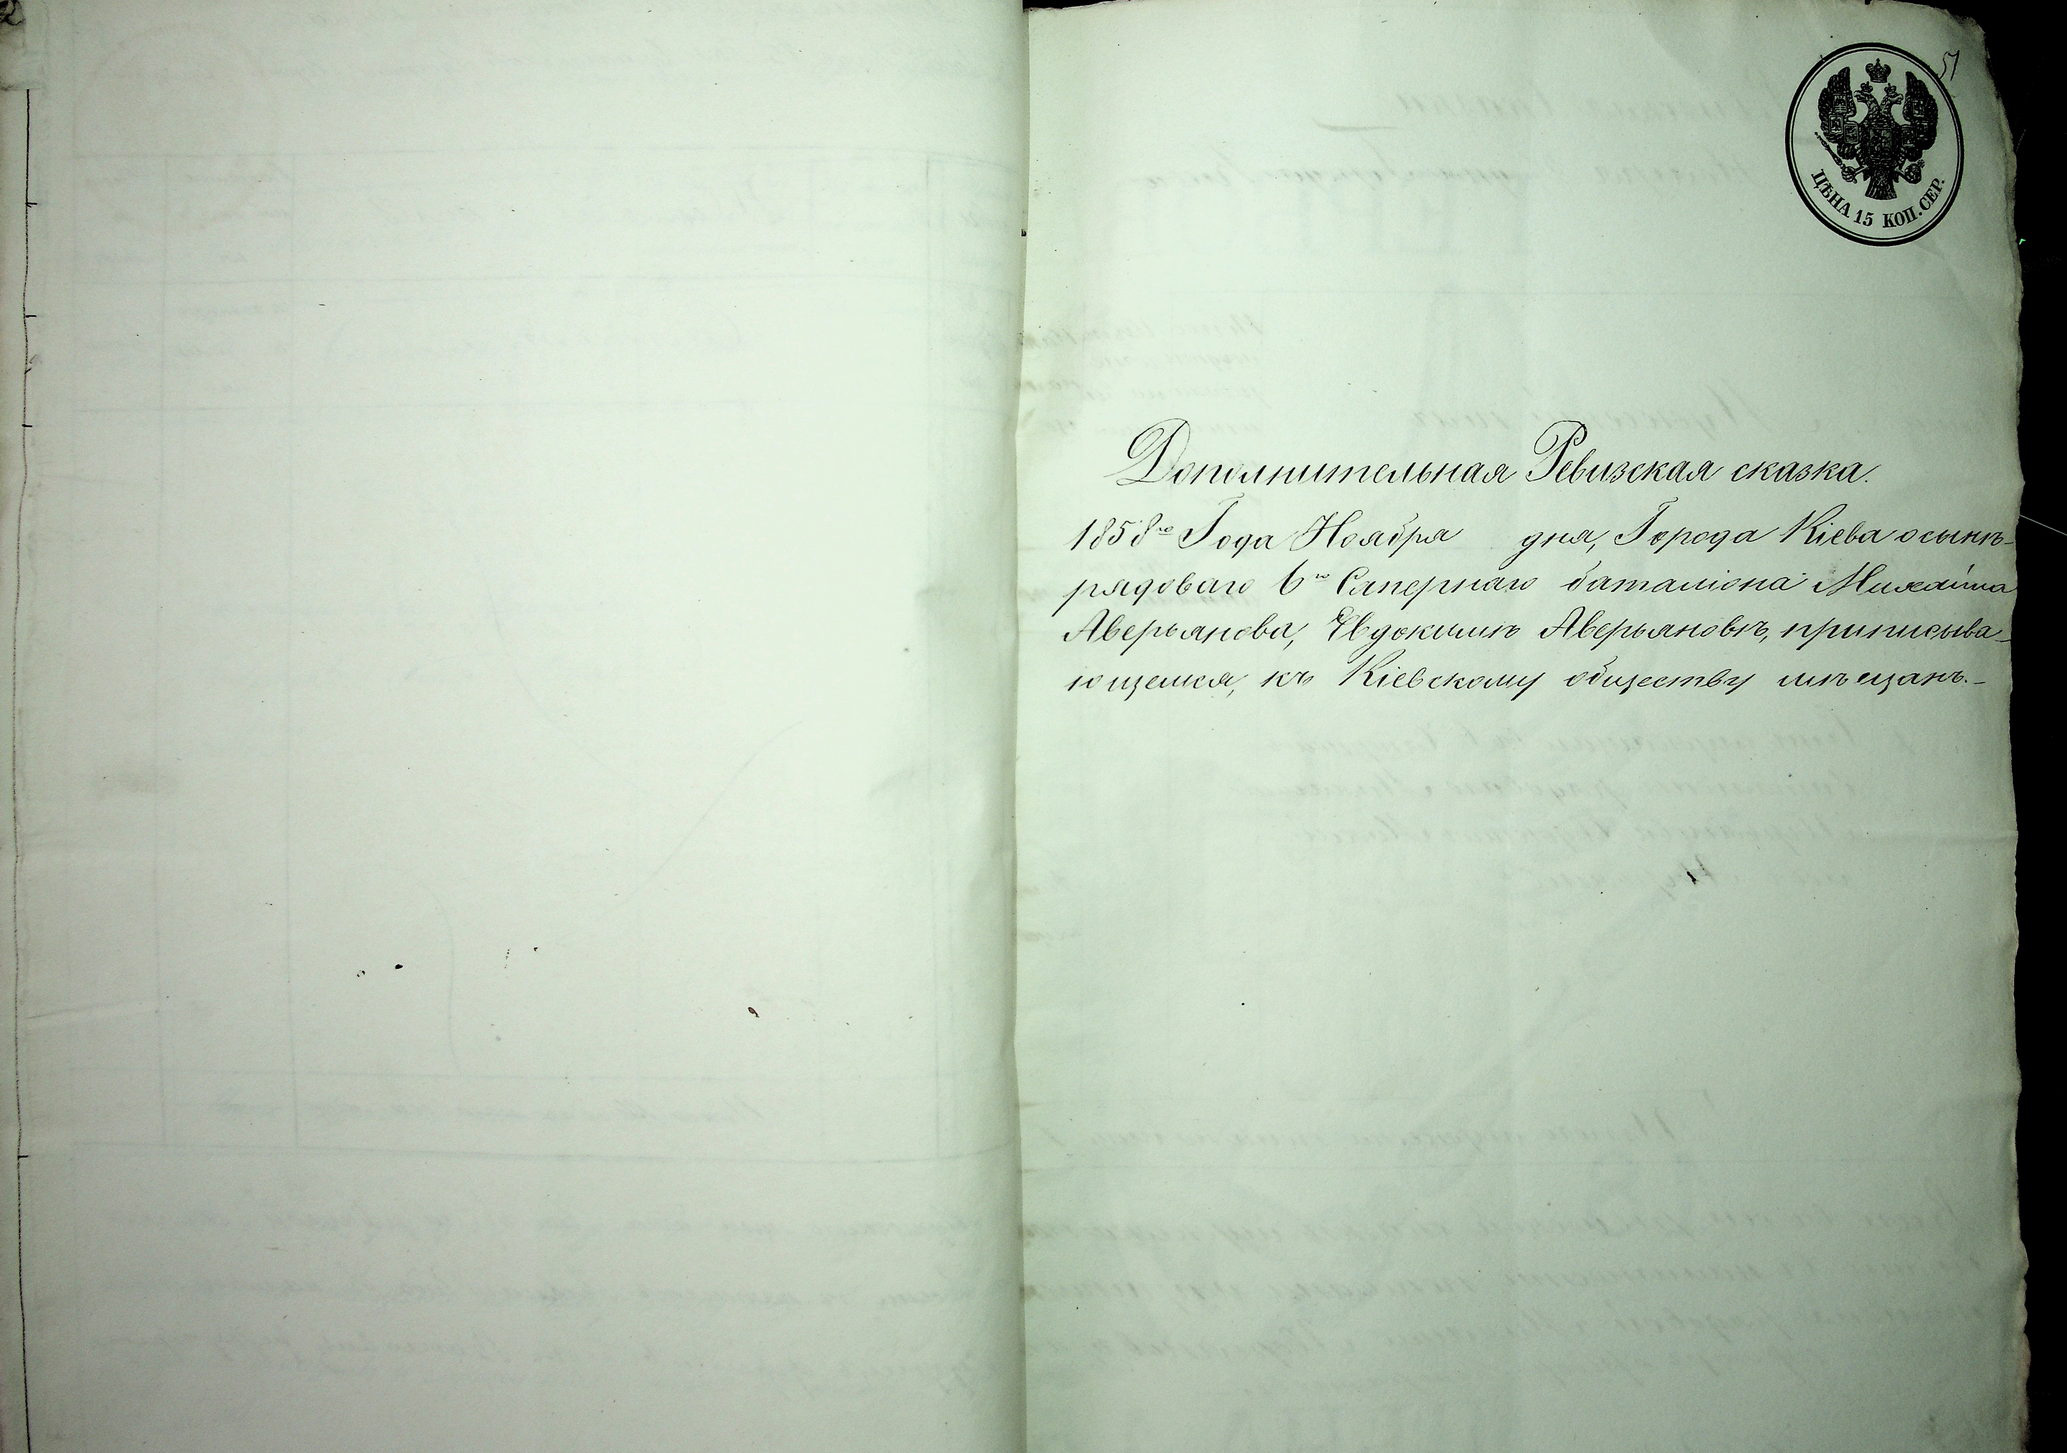 51
ЦѢНА 15 КОП. СЕР.
Дополнительная Ревизская сказка.
1858го Года Ноября дня, Города Кіева о сынѣ
рядоваго 6го Сапернаго баталіона Михаила
Аверьянова, Евдокимѣ Аверьяновѣ, приписыва-
ющемся, къ Кіевскому обществу мѣщанъ.-